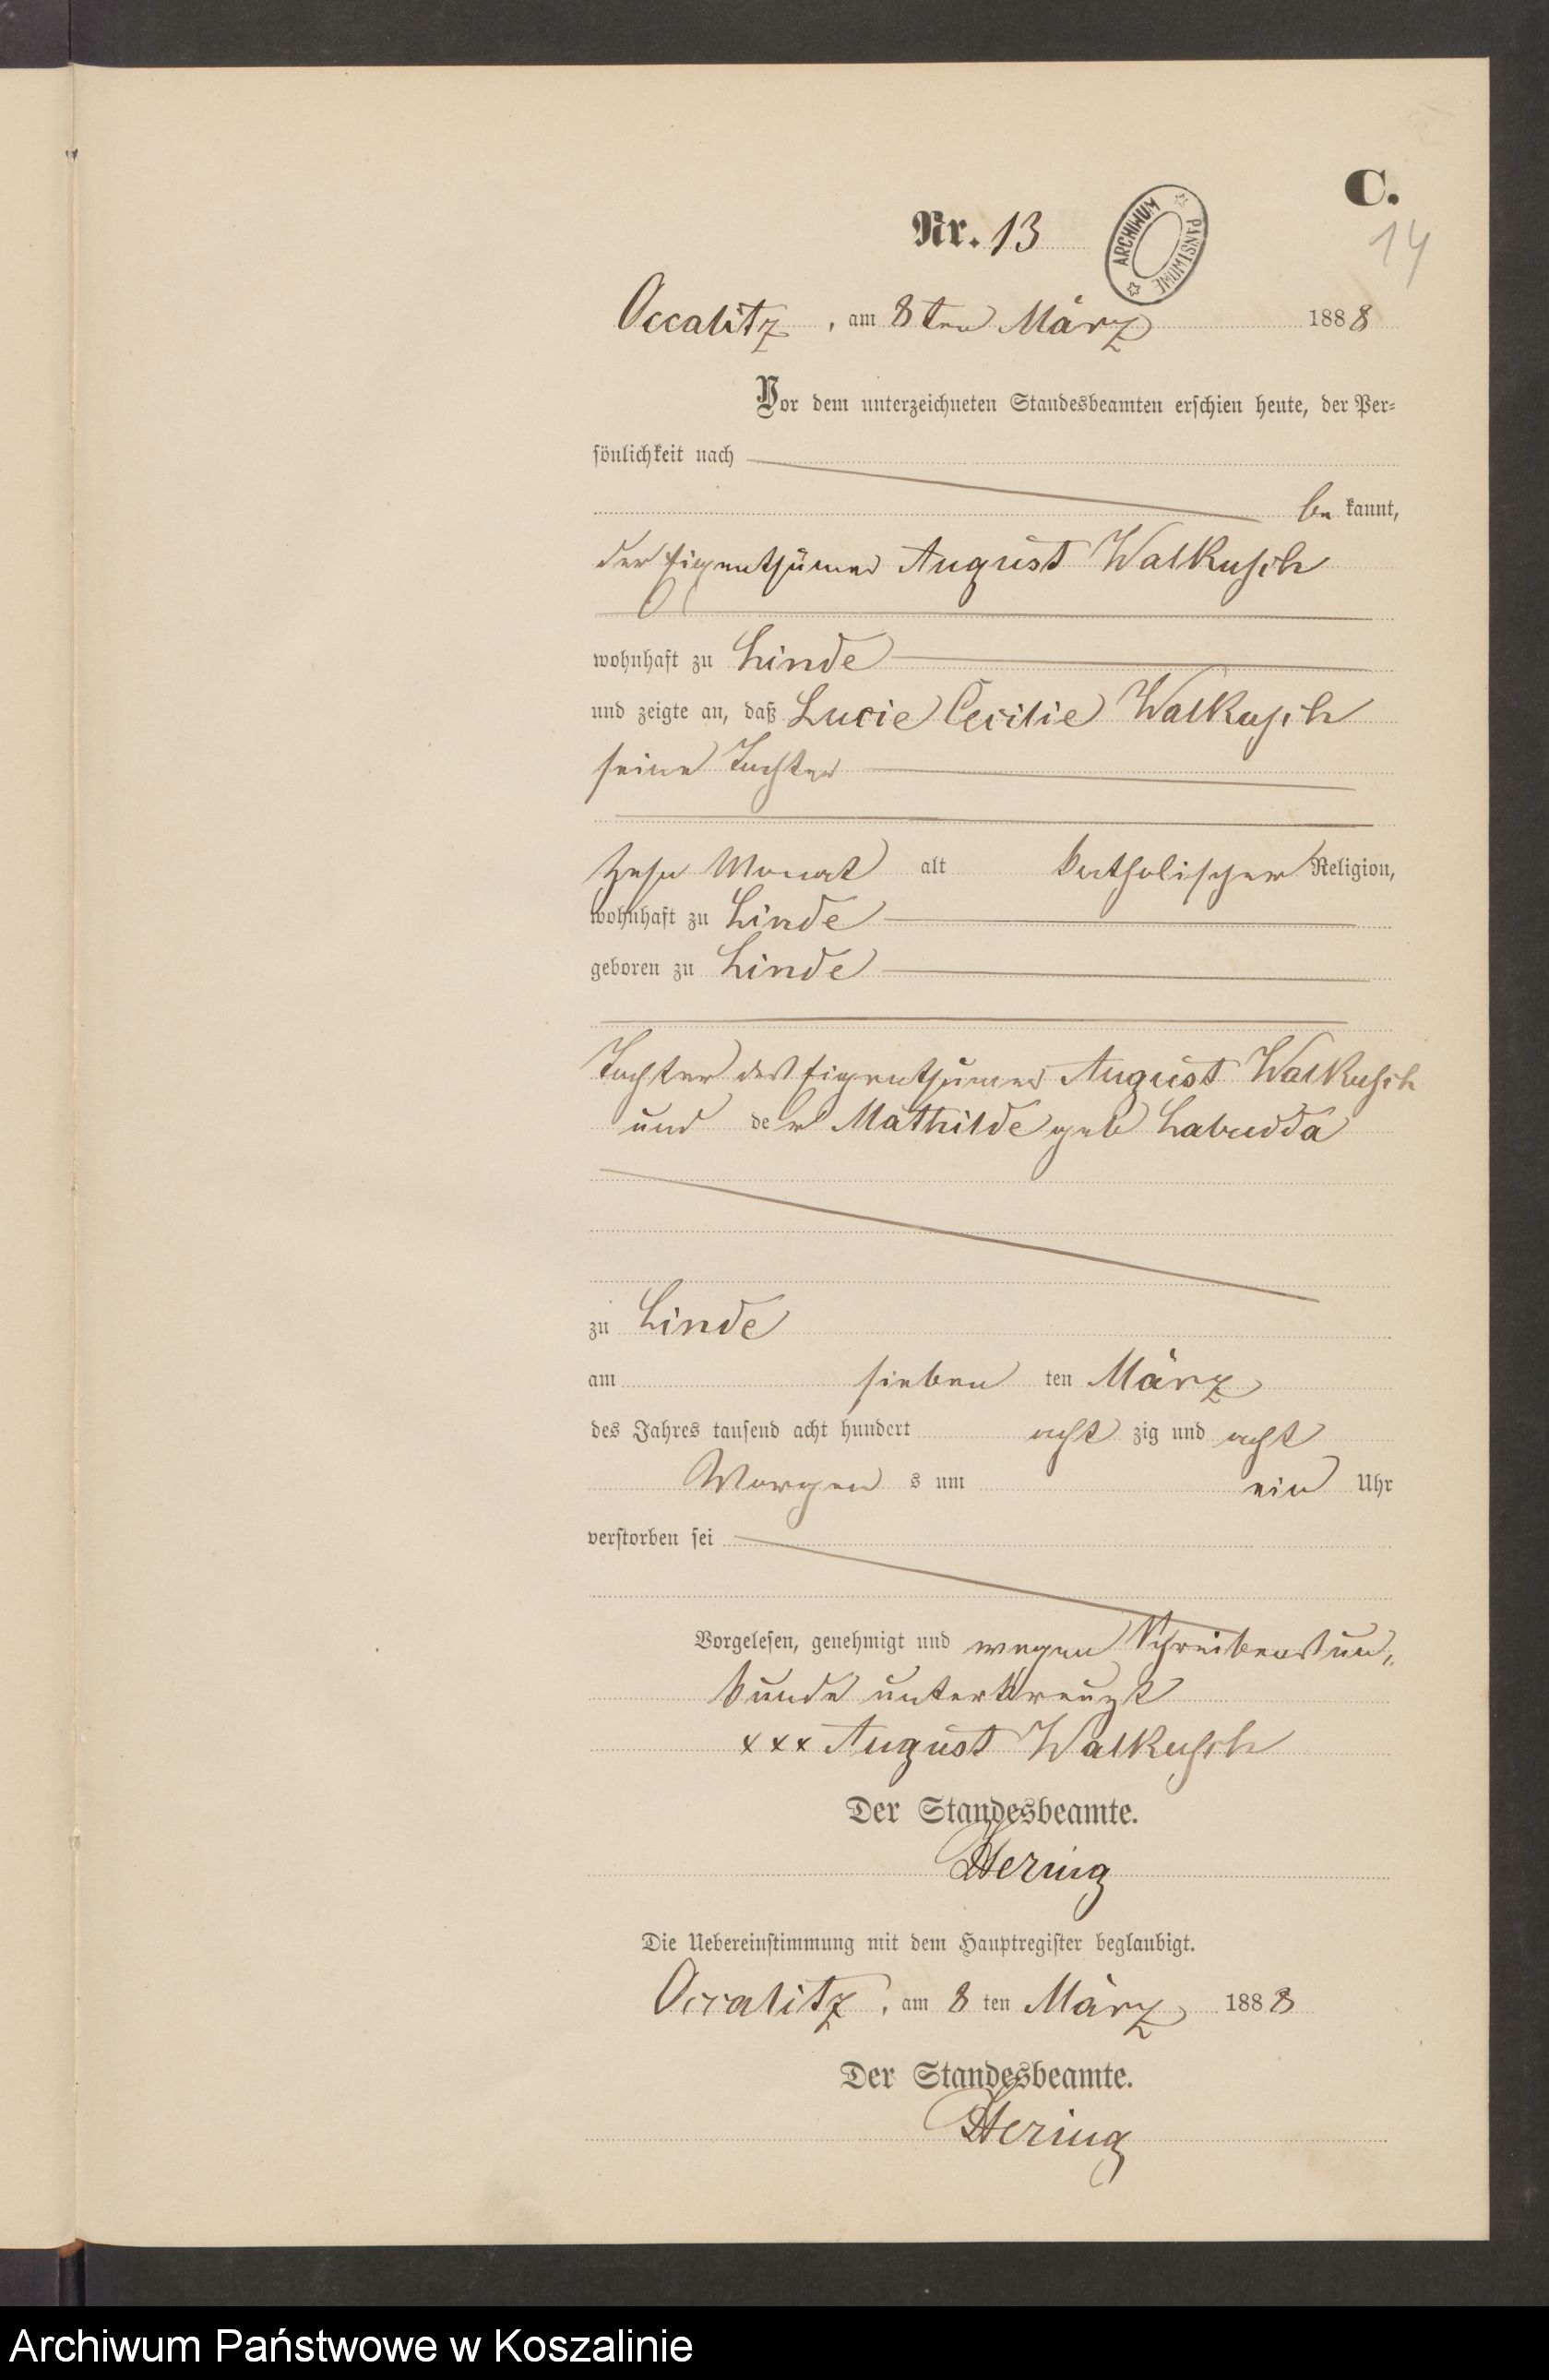 C.
Nr. 13
ARCHIWUM PAŃSTWOWE
14
Occalitz, am 8ten März 1888
Vor dem unterzeichneten Standesbeamten erschien heute, der Per-
sönlichkeit nach
be kannt,
der Eigenthümer August Walkusch
wohnhaft zu Linde
und zeigte an, daß Lucie Cecilie Walkusch
seine Tochter
zehn Monat alt katholischer Religion,
wohnhaft zu Linde
geboren zu Linde
Tochter des Eigenthümer August Walkusch
und der Mathilde geb Labudda
zu Linde
am sieben ten März
des Jahres tausend acht hundert acht zig und acht
Morgen s um ein Uhr
verstorben sei
Vorgelesen, genehmigt und wegen Schreibensun-
kunde unterkreuzt
xxx August Walkusch
Der Standesbeamte.
Hering
Die Uebereinstimmung mit dem Hauptregister beglaubigt.
Occalitz, am 8 ten März 1888
Der Standesbeamte.
Hering
Archiwum Państwowe w Koszalinie